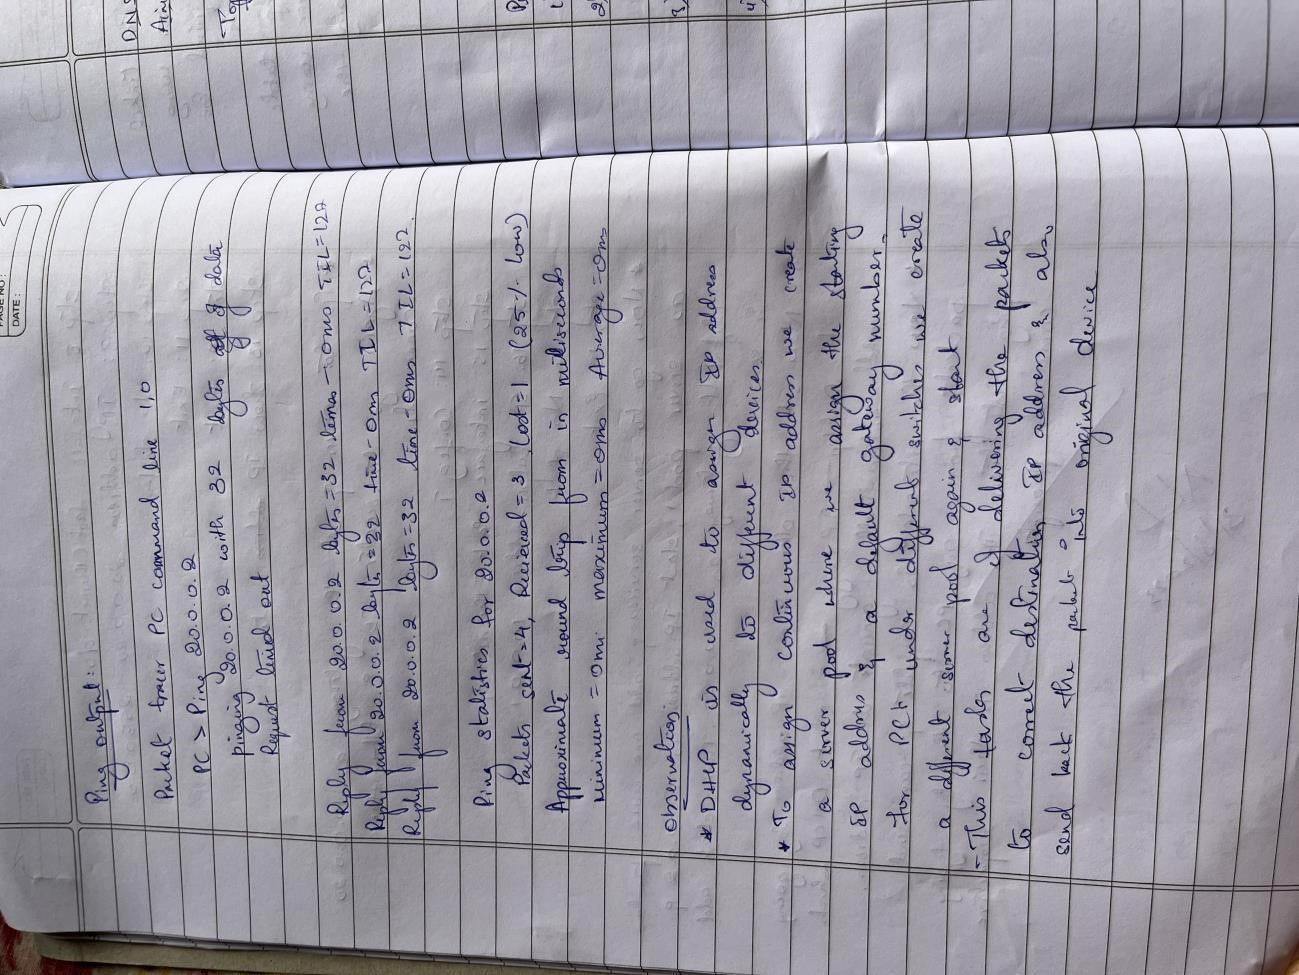 PAGE NO:
DATE:
Ping output:
Packet tracer PC command line 1.0
PC > Ping 20.0.0.2
pinging 20.0.0.2 with 32 bytes of data
Request timed out
Reply from 20.0.0.2 bytes=32 time=0ms TTL=127
Reply from 20.0.0.2 bytes=32 time=0ms TTL=127
Reply from 20.0.0.2 bytes=32 time=0ms TTL=127.
Ping statistics for 20.0.0.2
Packets sent=4, Recieved=3, Lost=1 (25% loss)
Approximate round trip from in miliseconds
Minimum = 0ms maximum=0ms Average=0ms
Observation:
* DHCP is used to assign IP address
dynamically to different devices.
* To assign continuous IP address we create
a server pool where we assign the starting
IP address & a default gateway number.
For PCs under different switches we create
a different server pool again & start
- This tasks are of delivering the packets
to correct destination IP address & also
send back the packet into original device
DNS